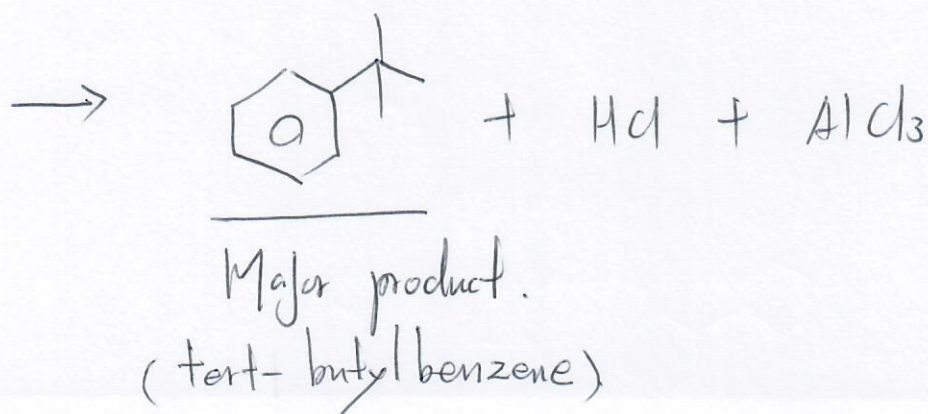 → + HCl + AlCl3
Major product.
(tert-butylbenzene)